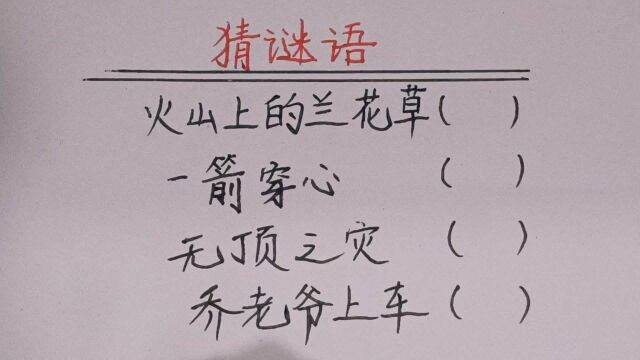 猜谜语
火山上的兰花草( )
一箭穿心 ( )
无顶之灾 ( )
乔老爷上车( )